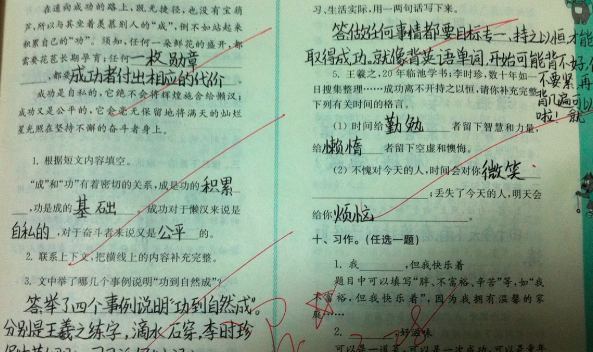 在通向成功的路上,既无捷径,也没有宝葫
芦,所以与其坐着羡慕别人的“成”,倒不如站起来
积累自己的“功”。须知,任何一朵鲜花的盛开,都
需要花芘长期孕育;任何一枚勋章
,都要成功者付出相应的代价
成功是自私的,它绝不会将辉煌施舍给懒汉;
成功又是公平的,它会毫无保地将满天的灿烂
星光照在坚持不懈的奋斗者身上。
1. 根据短文内容填空。
“成”和“功”有着密切的关系,成是功的积累
,功是成的基础。成功对于懒汉来说是
自私的,对于奋斗者来说又是公平的。
2. 联系上下文,把横线上的内容补充完整。
3. 文中举了哪几个事例说明“功到自然成”?
答举了四个事例说明“功到自然成”。
分别是王羲之练字,滴水石穿,李时珍
习、生活实际,用一两句话写下来。
答做任何事情都要目标专一,持之以恒才能
取得成功。就像背英语单词,开始可能背不好,但
不要紧,再
背几遍可以
啦!就
5. 王羲之,20年临池学书;李时珍,数十年如一
日搜集整理……成功离不开持之以恒,请你补充完整
下列有关时间的格言。
(1) 时间给勤勉者留下智慧和力量,
给懒惰者留下空虚和懊悔。
(2) 不愧对今天的人,时间会对你微笑
;丢失了今天的人,明天会
给你烦恼。
十、习作。(任选一题)
1. 我,但我快乐着
题目中可以填写“胖、不富裕、辛苦”等,如“我
不富裕,但我快乐着”,因为我拥有温馨的家
庭……
2. 好滋味